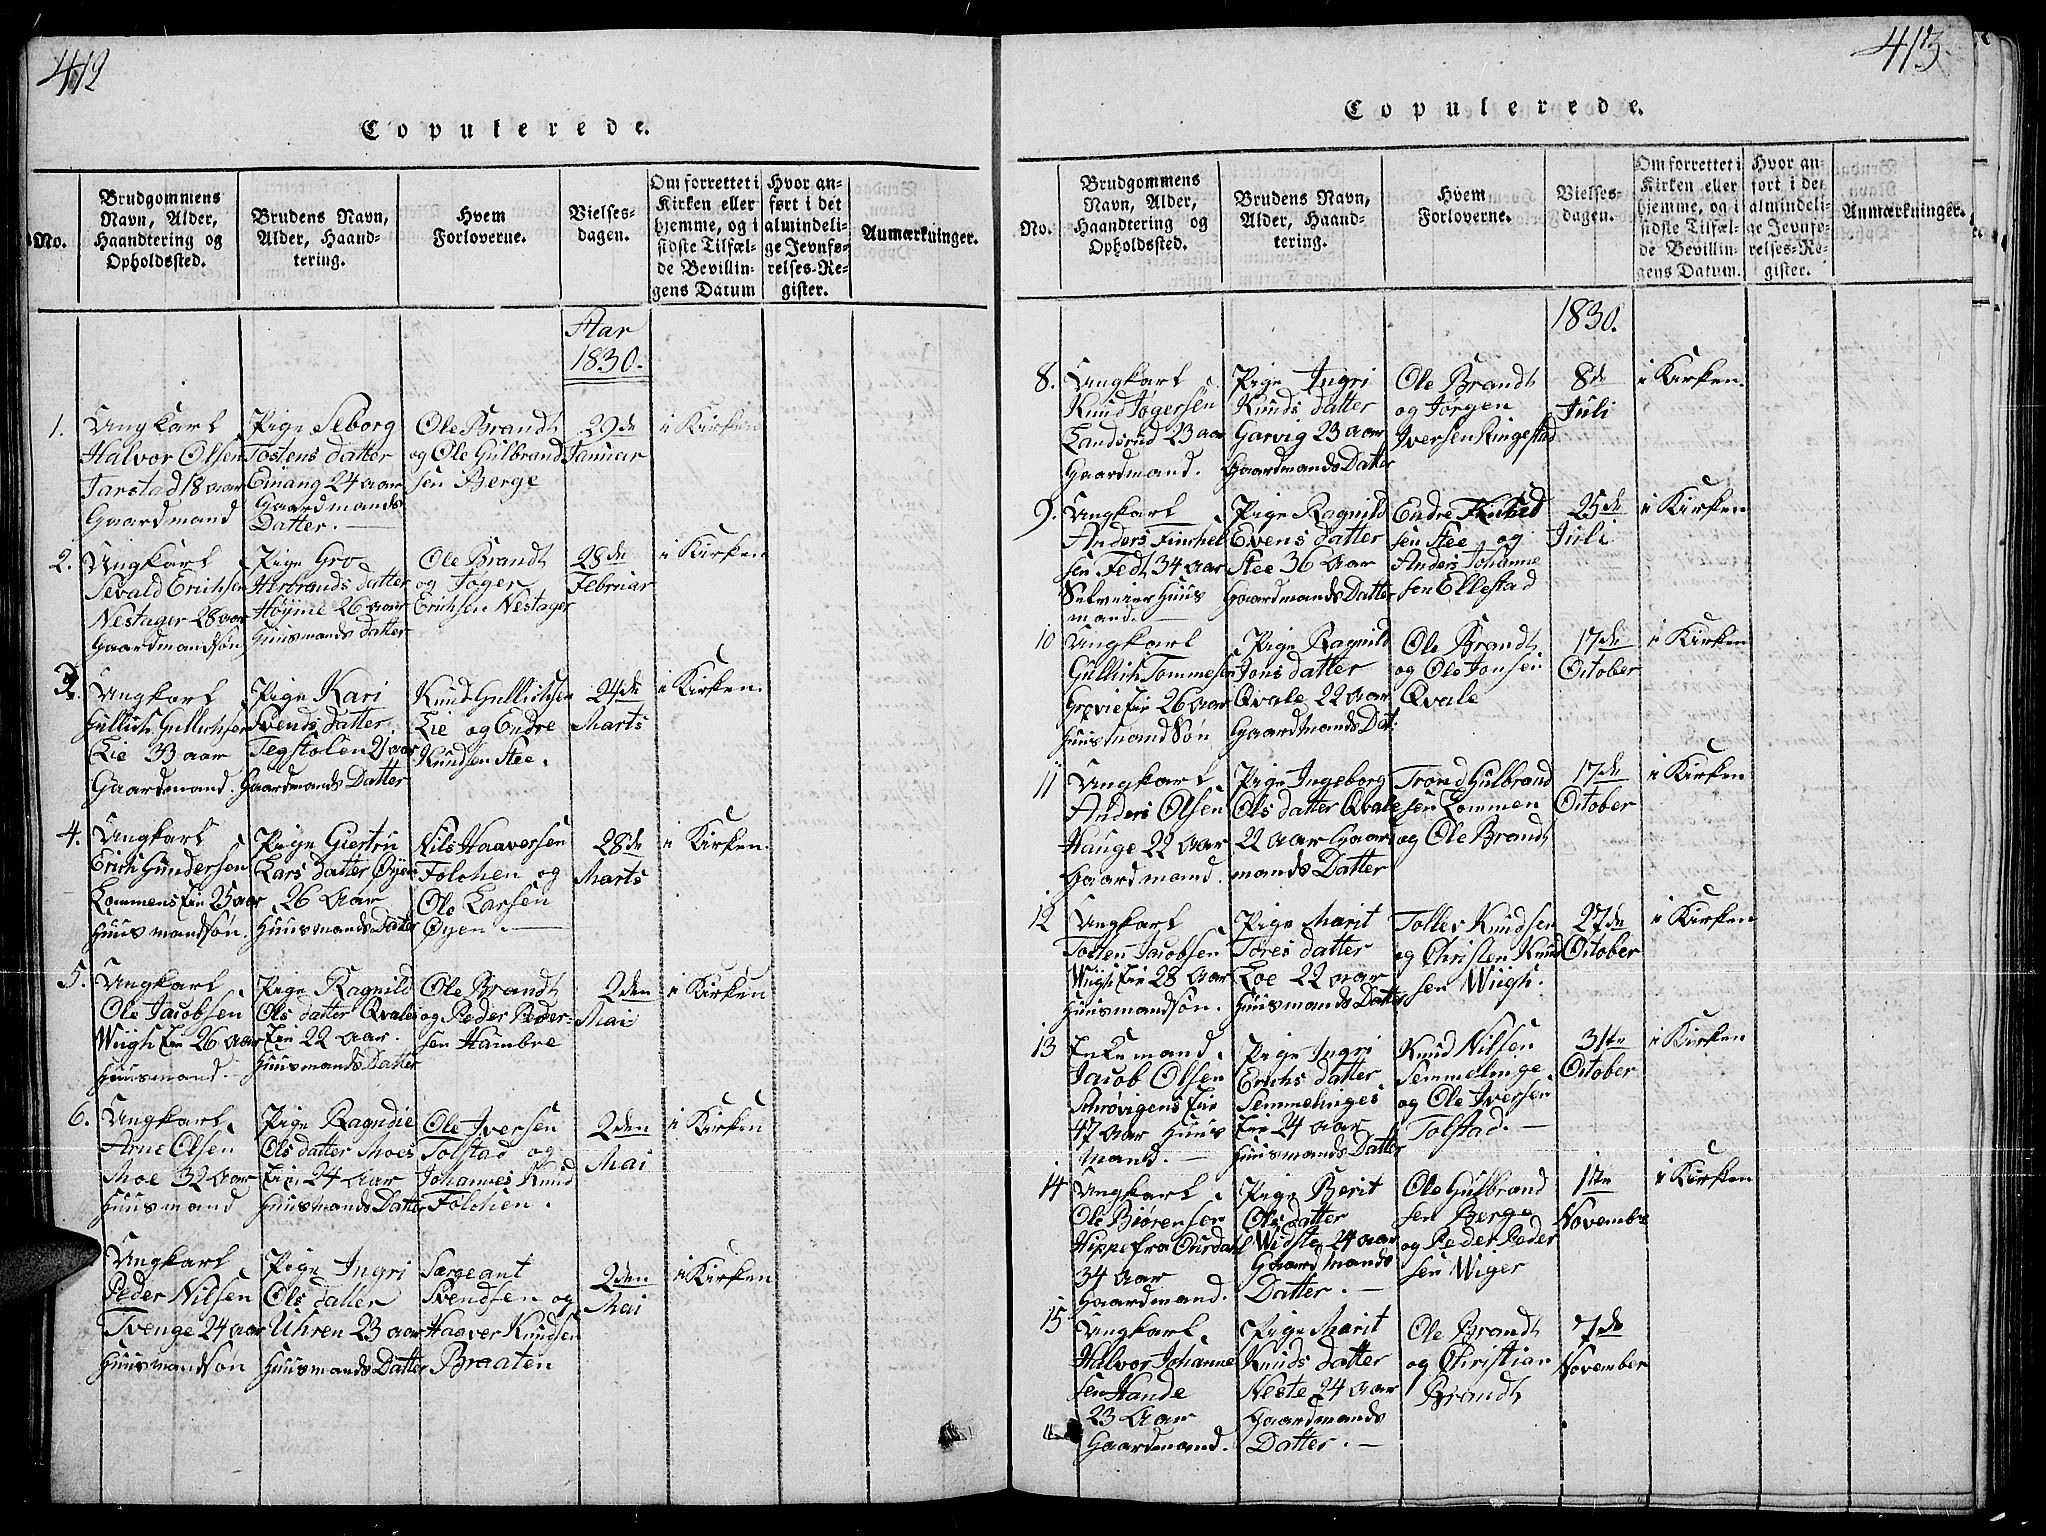 412
Copulerede.
No.
Brudgommens
Navn, Alder,
Haandtering og
Opholdssted.
Brudens Navn,
Alder, Haand-
tering.
Hvem
Forloverne.
Vielses-
dagen.
Om forrettet i
Kirken eller
hjemme, og i
sidste Tilfæl-
de Bevillin-
gens Datum
Hvor an-
ført i det
almindeli-
ge Jevnfø-
relses-Re-
gister.
Anmærkninger.
Aar
1830.
1.
Ungkarl
Halvor Olsen
Jarstad 18 aar
Gaardmand
Pige Seborg
Tostens datter
Einang 24 aar
Gaardmands
Datter.
Ole Brandt
og Ole Gulbrand
sen Berge
29de
Januar
i Kirken
2.
Ungkarl
Sevald Erichsen
Nestager 28 aar
Gaardmandsøn
Pige Gro
Herbrands datter
Høyme 26 aar
Huusmands datter
Ole Brandt
og Joger
Erichsen Nestager
28de
Februar
i Kirken
3.
Ungkarl
Gullich Gullichsen
Lie 33 aar
Gaardmand.
Pige Kari
Svends datter
Tegstolen 21 aar
Gaardmands Datter
Knud Gullichsen
Lie og Endre
Knudsen Stee.
24de
Marts
i Kirken.
4.
Ungkarl
Erich Gundersen
Lommens Eie 25 aar
Huusmandsøn.
Pige Giertru
Lars datter Øyen
26 Aar
Huusmands Datter
Nils Haaversen
Folchen og
Ole Larsen
Øyen.
28de
Marts
i Kirken.
5.
Ungkarl
Ole Jacobsen
Wiigh Eie 26 Aar
Huusmand.
Pige Ragnild
Ols datter Qvales
Eie 22 aar.
Huusmands Datter
Ole Brandt
og Peder Peder-
sen Hambre
2den
Mai
i Kirken
6.
Ungkarl
Arne Olsen
Moe 32 Aar
Huusmand
Pige Ragndie
Ols datter Moes
Eie 24 Aar
Huusmands Datter
Ole Iversen
Tolstad og
Johannes Knud
Folchen.
2den
Mai
i Kirken
Ungkarl
Peder Nilsen
Tvenge 24 aar
Huusmandsøn
Pige Ingri
Ols datter
Uhren 23 aar
Huusmands Datter
Sergeant
Svendsen og
Haaver Knudsen
Braaten
2den
Mai
i Kirken
413
Copulerede.
No.
Brudgommens
Navn, Alder,
Haandtering og
Opholdssted.
Brudens Navn,
Alder, Haand-
tering.
Hvem
Forloverne.
Vielses-
dagen.
Om forrettet i
Kirken eller
hjemme, og i
sidste Tilfæl-
de Bevillin-
gens Datum.
Hvor an-
ført i det
almindeli-
ge Jevnfø-
relses-Re-
gister.
Anmærkninger.
1830.
8.
Ungkarl
Knud Jøgersen
Landsrud 23 aar
Gaardmand.
Pige Ingri
Knuds datter
Garvig 23 aar
Gaardmands Datter
Ole Brandt
og Jørgen
Iversen Ringestad
8de
Juli
i Kirken.
9.
Ungkarl
Anders Finchel
sen Fedt 34 aar
Selveier Huus
mand.
Pige Ragnild
Evens datter
Stee 36 Aar
Gaardmands Datter
Endre
sen Stee og
Anders Johanne
sen Ellestad
25de
Juli
i Kirken
10
Ungkarl
Gullich Tommesen
Grøvie Eie 26 aar
Huusmandsøn
Pige Ragnild
Jons datter
Qvale 22 aar
Gaardmands Dat:
Ole Brandt
og Ole Jonsen
Qvale
17de
October
i Kirken
11
Ungkarl
Anders Olsen
Hauge 22 aar
Gaardmand.
Pige Ingeborg
Ols datter Qvale
22 aar Gaard
mands Datter
Trond Gulbrand
sen Lommen
og Ole Brandt
17de
October
i Kirken
12
Ungkarl
Tosten Jacobsen
Wiigh Eie 28 Aar
Huusmandsøn.
Pige Marit
Tores datter
Loe 22 aar
Huusmands Datter
Tollev Knudsen
og Christen Knud
sen Wiigh.
27de
October
i Kirken
13
Enkemand
Jacob Olsen
Schrøvigens Eie
47 aar Huus
mand.
Pige Ingri
Erichs datter
Semmelinges
Eie 24 aar
Huusmands Datter
Knud Nilsen
Semmelinge
og Ole Iversen
Tolstad.
31te
October
i Kirken
14
Ungkarl
Ole Biørensen
Hippe fra Ourdahl
34 Aar
Gaardmand.
Pige Berit
Ols datter
Widste 24 aar
Gaardmands
Datter.
Ole Gulbrand
sen Berge
og Peder Peder
sen Wiger
1ste
Novembre
i Kirken
15
Ungkarl
Halvor Johanne
sen Hande
23 Aar
Gaardmand.
Pige Marit
Knuds datter
Neste 24 aar
Gaardmands
Datter.
Ole Brandt
og Christian
Brandt
7de
November